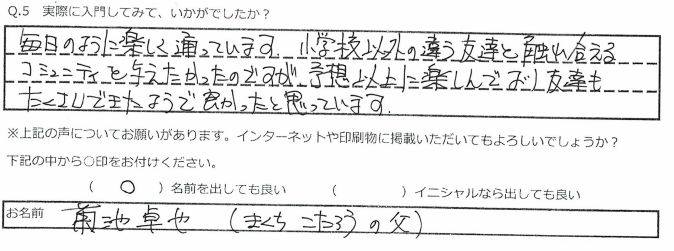 Q.5 実際に入門してみて、いかがでしたか？
毎日のように楽しく通っています。小学校以外の違う友達と触れ合える
コミュニティを与えたかったのですが、予想以上に楽しんでおり友達も
たくさんできたようで良かったと思っています。
※上記の声についてお願いがあります。インターネットや印刷物に掲載いただいてもよろしいでしょうか？
下記の中から○印をお付けください。
（ ○ ）名前を出しても良い （ ）イニシャルなら出しても良い
お名前 菊池卓也 （きくち こたろうの父）